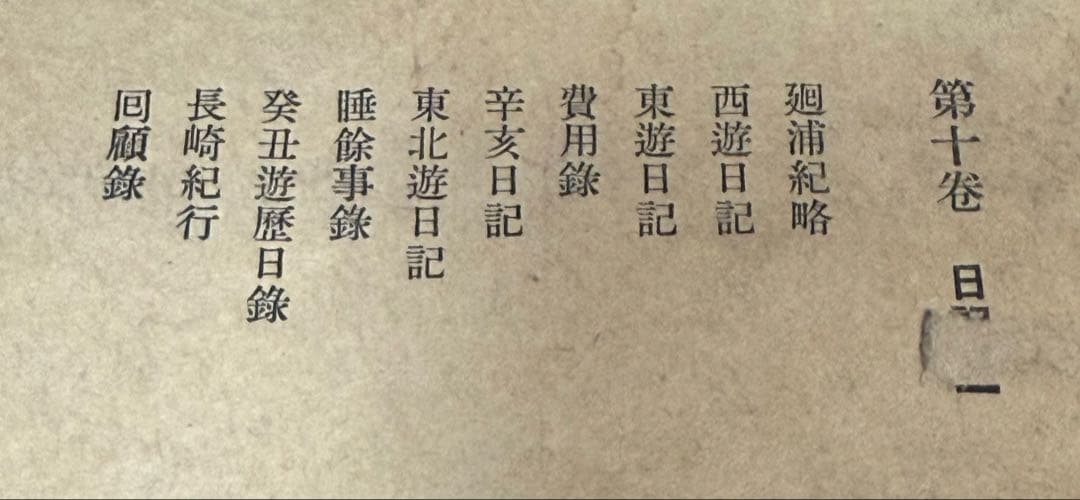 第十卷 日記 一
廻浦紀略
西遊日記
東遊日記
費用錄
辛亥日記
東北遊日記
睡餘事錄
癸丑遊歷日錄
長崎紀行
囘顧錄